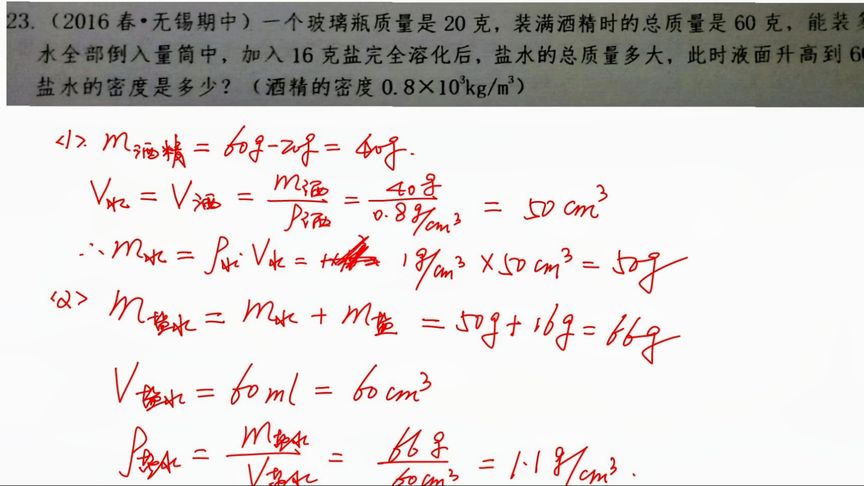 23.（2016 春•无锡期中）一个玻璃瓶质量是 20 克，装满酒精时的总质量是 60 克，能装
水全部倒入量筒中，加入 16 克盐完全溶化后，盐水的总质量多大，此时液面升高到
盐水的密度是多少？（酒精的密度 0.8×10³kg/m³）
<1>. m酒精 = 60g-20g = 40g.
V水 = V酒 = m酒/ρ酒 = 40g/0.8g/cm³ = 50 cm³
∴ m水 = ρ水·V水 = 1g/cm³ ×50 cm³ = 50g
<2> m盐水 = m水 + m盐 = 50g+16g = 66g
V盐水 = 60ml = 60cm³
ρ盐水 = m盐水/V盐水 = 66g/60cm³ = 1.1g/cm³.